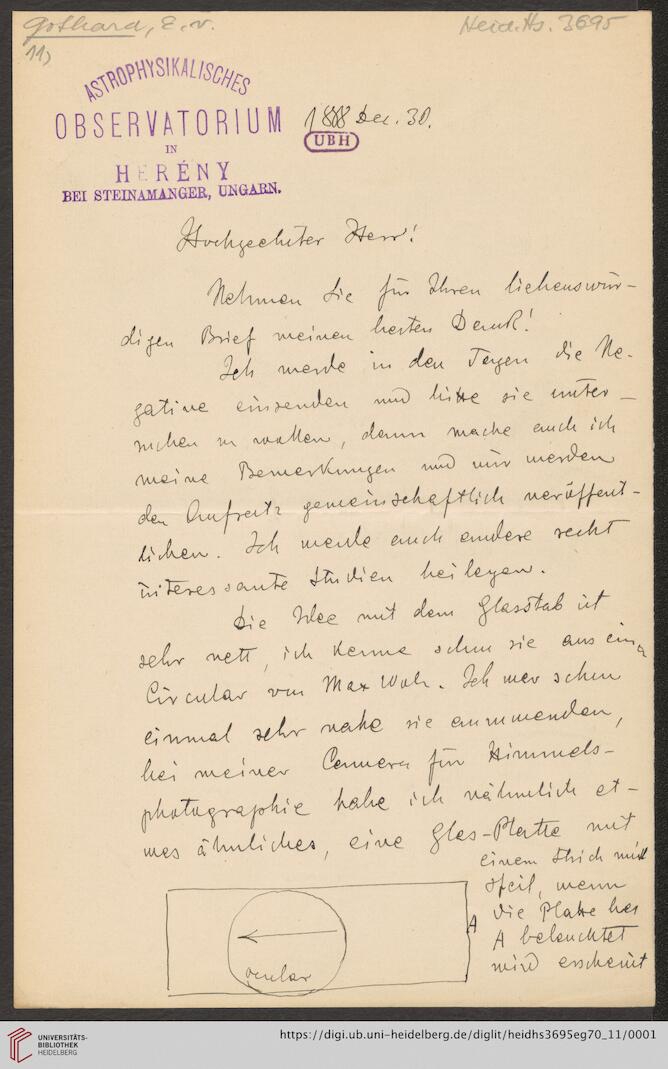 Gothard, E. v.
Heid. Hs. 3695
11)
ASTROPHYSIKALISCHES
OBSERVATORIUM
IN
HERÉNY
BEI STEINAMANGER, UNGARN.
1888 Dec. 30.
UBH
Hochgeehrter Herr!
Nehmen Sie für Ihren liebenswür-
digen Brief meinen besten Dank!
Ich werde in den Tagen die Ne-
gative einsenden und bitte sie unter-
suchen zu wollen, dann mache auch ich
meine Bemerkungen und wir werden
den Aufsatz gemeinschaftlich veröffent-
lichen. Ich werde auch andere recht
interessante Studien beilegen.
Die Idee mit dem Glasstab ist
sehr nett, ich kenne schon sie aus einem
Circular von Max Wolf. Ich war schon
einmal sehr nahe sie anwenden,
bei meiner Camera für Himmels-
photographie habe ich nähmlich et-
was ähnliches, eine Glas-Platte mit
einem Strich mit
Pfeil, wenn
die Platte bei
A beleuchtet
wird erscheint
A
ocular
UNIVERSITÄTS-
BIBLIOTHEK
HEIDELBERG
https://digi.ub.uni-heidelberg.de/diglit/heidhs3695eg70_11/0001